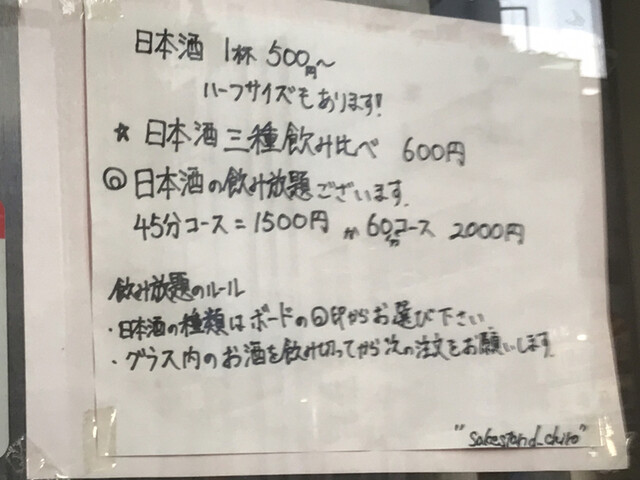 日本酒 1杯 500円〜
ハーフサイズもあります!
☆ 日本酒 三種飲み比べ 600円
◎ 日本酒の飲み放題ございます.
45分コース = 1500円 〃 60分コース 2000円
飲み放題のルール
・日本酒の種類はボードの◎印からお選び下さい
・グラス内のお酒を飲み切ってから次の注文をお願いします.
"sakestand_chiro"